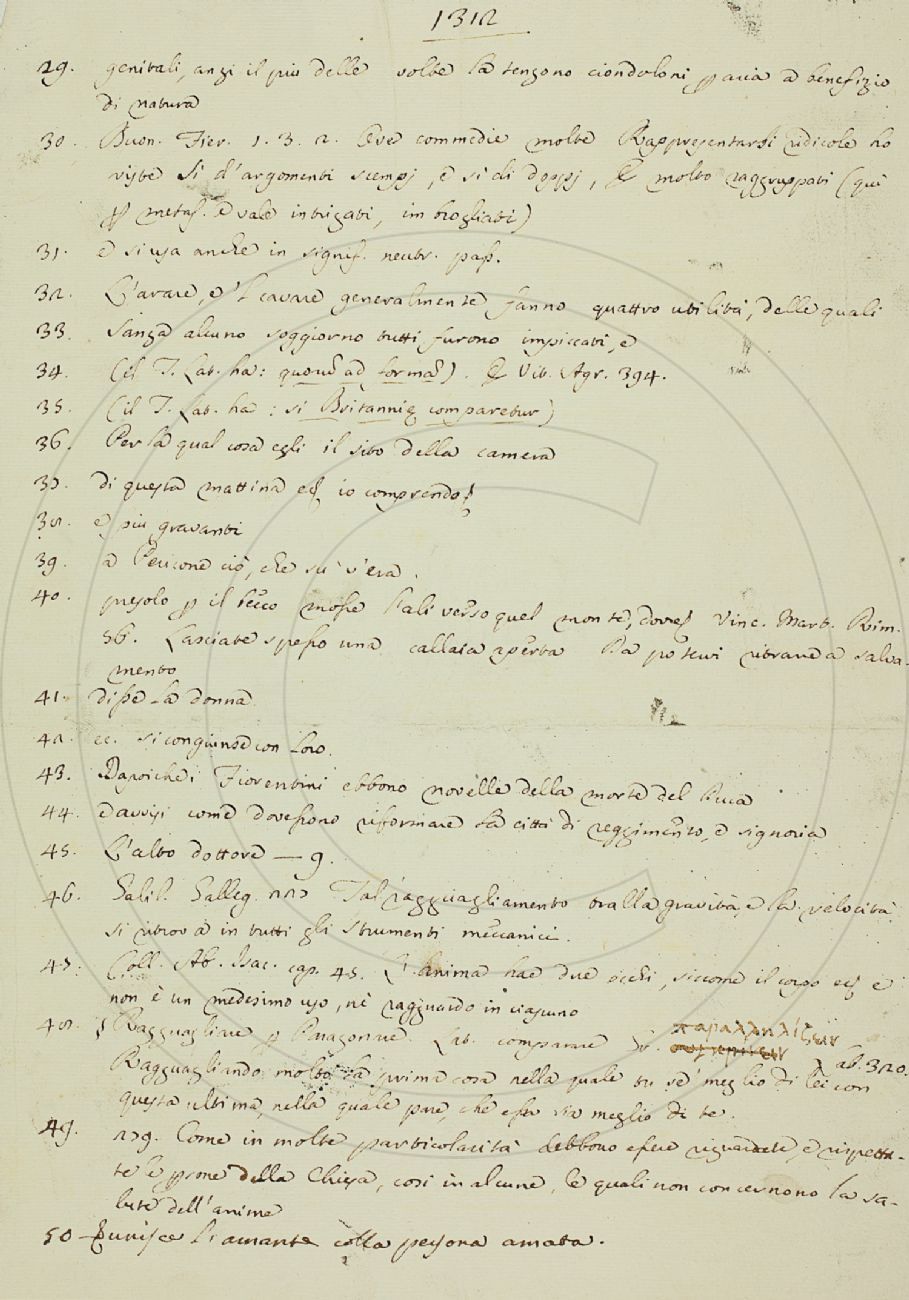 1312
29. genitali, anzi il più delle volte la tengono ciondoloni p avia a benefizio
di natura
30. Buon. Fier. 1. 3. 2. Ove commedie molte Rappresentarsi ridicole ho
viste Si d'argomenti scempj, e si di doppj, E molto raggruppati (qui
p metaf. e vale intrigati, imbrogliati)
31. e si usa anche in signif. neutr. pass.
32. L'arare, e 'l cavare generalmente fanno quattro utilità, delle quali
33. Sanza alcuno soggiorno tutti furono impiccati, e
34. (il T. Lat. ha: ad formã). Vit. Agr. 394.
35. (il T. Lat. ha: si Britannię comparetur)
36. Per la qual cosa egli il sito della camera
37. di questa mattina io comprendo
38. e più gravanti
39. a Pericone ciò, che su v'era.
40. presolo p il becco mosse l'ali verso quel monte, dove Vinc. Mart. Rim.
56. Lasciate spesso una callaia aperta Da potervi ritrarre a salva-
mento
41. disse la donna
42. ec. si congiunse con loro.
43. Dapoiche i Fiorentini ebbono novelle della morte del Duca
44. d'avvisi come dovessono riformare la città di reggimento, e signoria
45. L'alto dottore — 9.
46. Galil. Galleg. 227 Tal ragguagliamento tralla gravità, e la velocità
si ritrova in tutti gli strumenti meccanici.
47. Coll. Ab. Isac. cap. 45. L'anima hae due occhi, siccome il corpo e
non è un medesimo uso, nè ragguardo in ciascuno
48. § Ragguagliare p Paragonare. Lat. comparare Gr. παραλληλίζειν
ab. 320.
Ragguagliando molto la prima cosa nella quale tu se' meglio di lei con
questa ultima, nella quale pare, che essa sia meglio di te.
49. 279. Come in molte particolarità debbono essere riguardate, e rispetta-
te le psone della Chiesa, così in alcune, le quali non concernono la sa-
lute dell'anime
50 unisce l'amante colla persona amata.